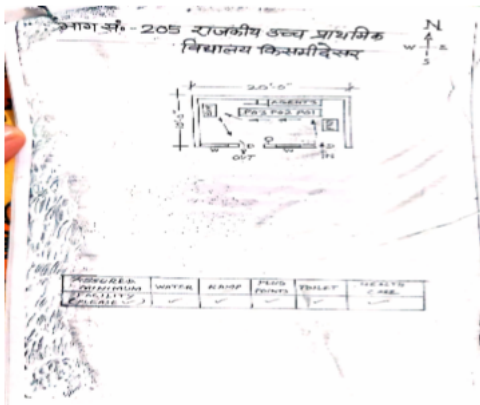 भाग सं.- 205 राजकीय उच्च प्राथमिक
विद्यालय किसमीदेसर
N
W E
S
20'-0"
AGENTS
PO3 PO2 PO1
W D W D
OUT IN
ASSURED MINIMUM FACILITY (PLEASE ✓) WATER RAMP PLUG POINTS TOILET HEALTH CARE
✓ ✓ ✓ ✓ ✓